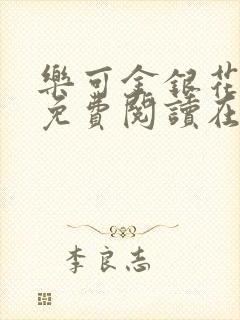 樂可金銀花
免費閱讀在
李良志